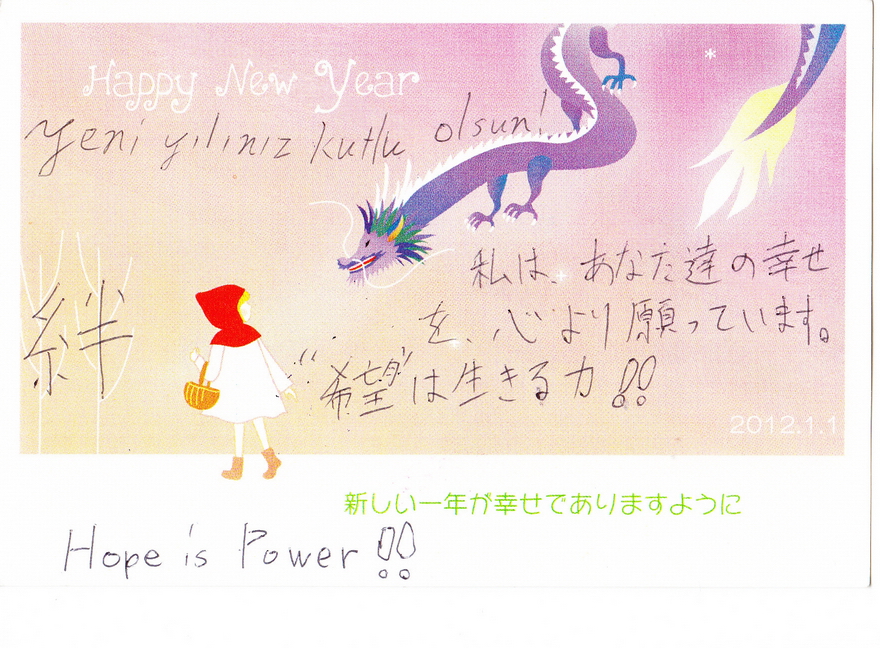 Happy New Year
Yeni yılınız kutlu olsun!
私は、あなた達の幸せ
を、心より願っています。
絆
"希望"は生きる力!!
2012.1.1
新しい一年が幸せでありますように
Hope is Power!!